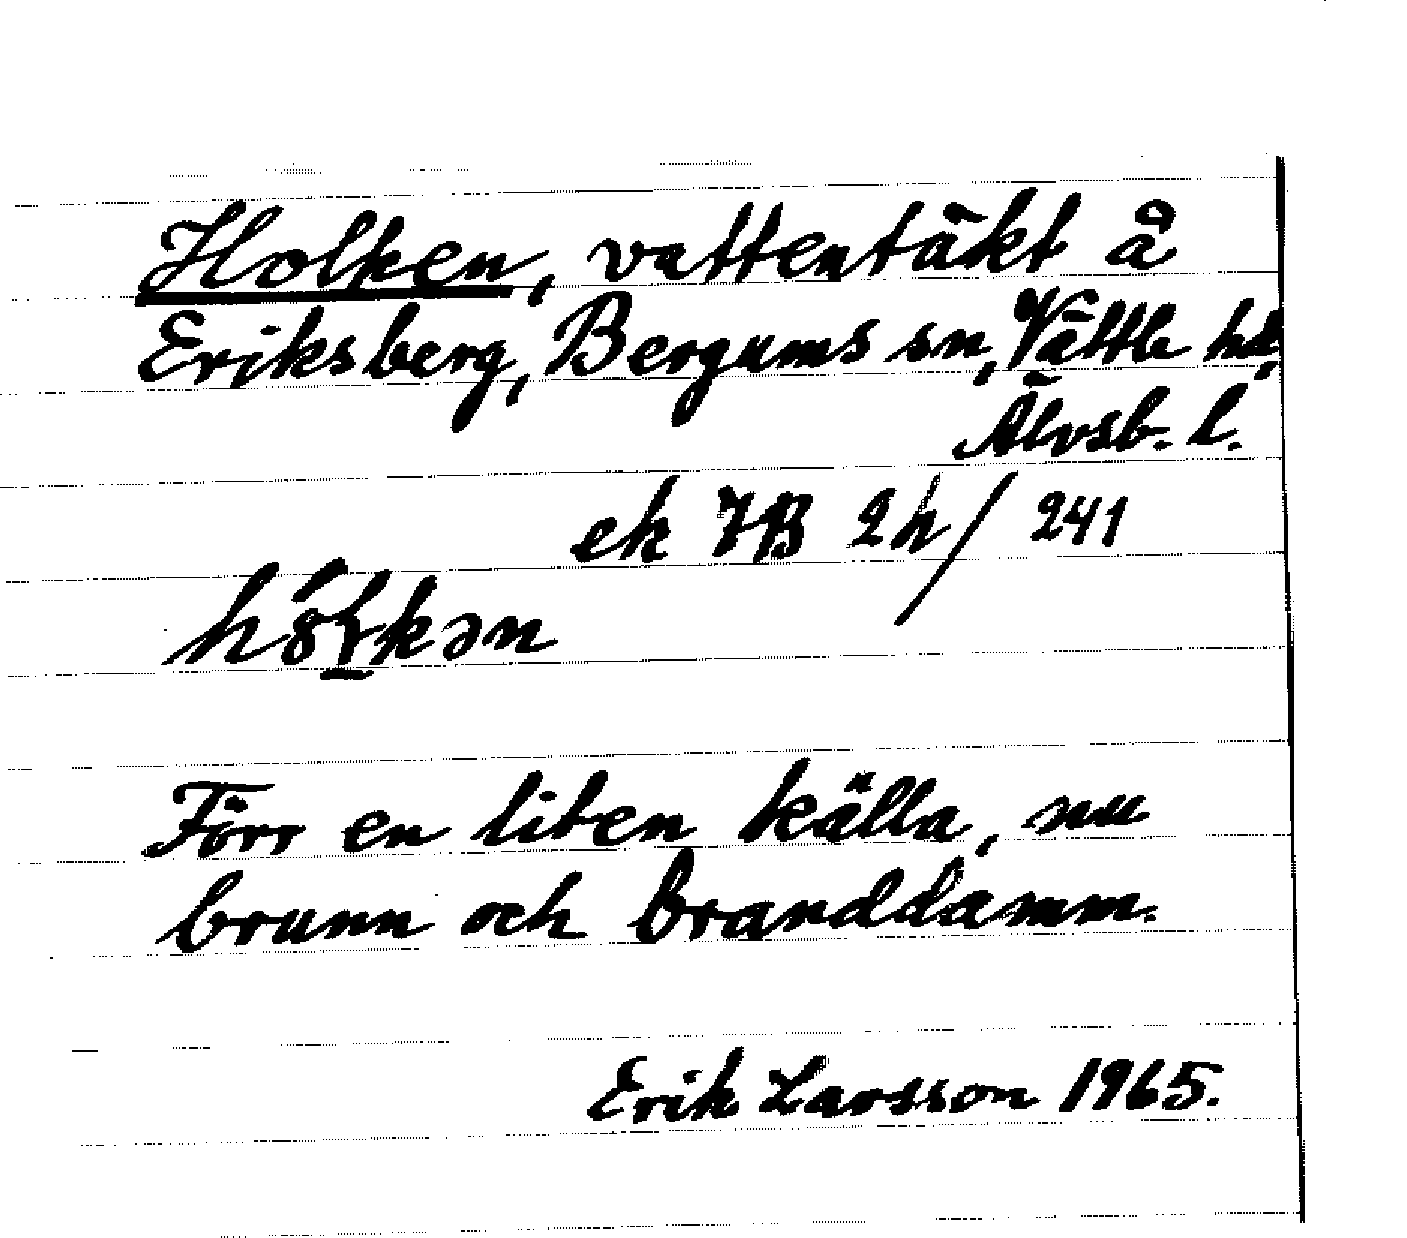 Holken, vattentäkt å
Eriksberg, Bergums sn, Vättle hd,
Älvsb. l.
ek 7B 2h / 241
Förr en liten källa, nu
brunn och branddamm.
Erik Larsson 1965.